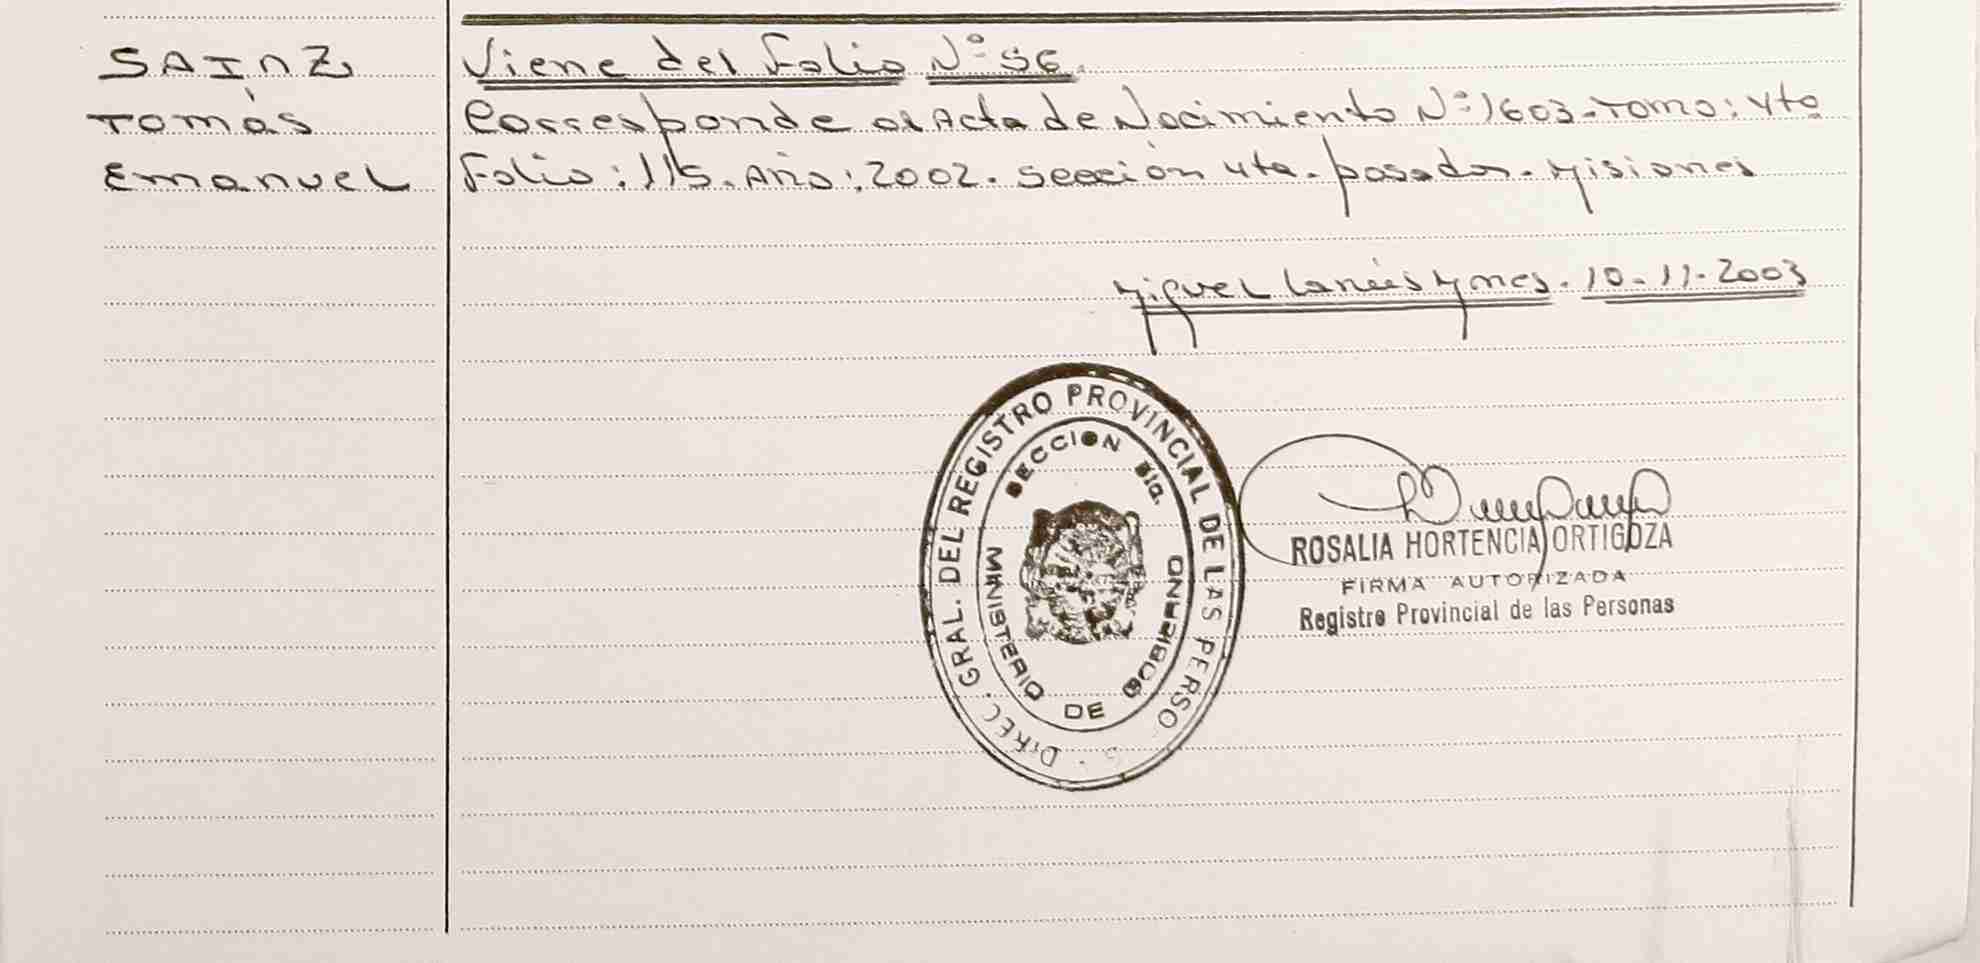 SAINZ
Tomás
Emanuel
Viene del Folio N° 56.
Corresponde al Acta de Nacimiento N° 1603. Tomo: 4to
Folio: 115. Año: 2002. Sección 4ta. posadas. Misiones
Miguel Lanús Mnes. 10-11-2003
DIREC. GRAL. DEL REGISTRO PROVINCIAL DE LAS PERSO
SECCION
MINISTERIO DE GOBIERNO
ROSALIA HORTENCIA ORTIGOZA
FIRMA AUTORIZADA
Registro Provincial de las Personas